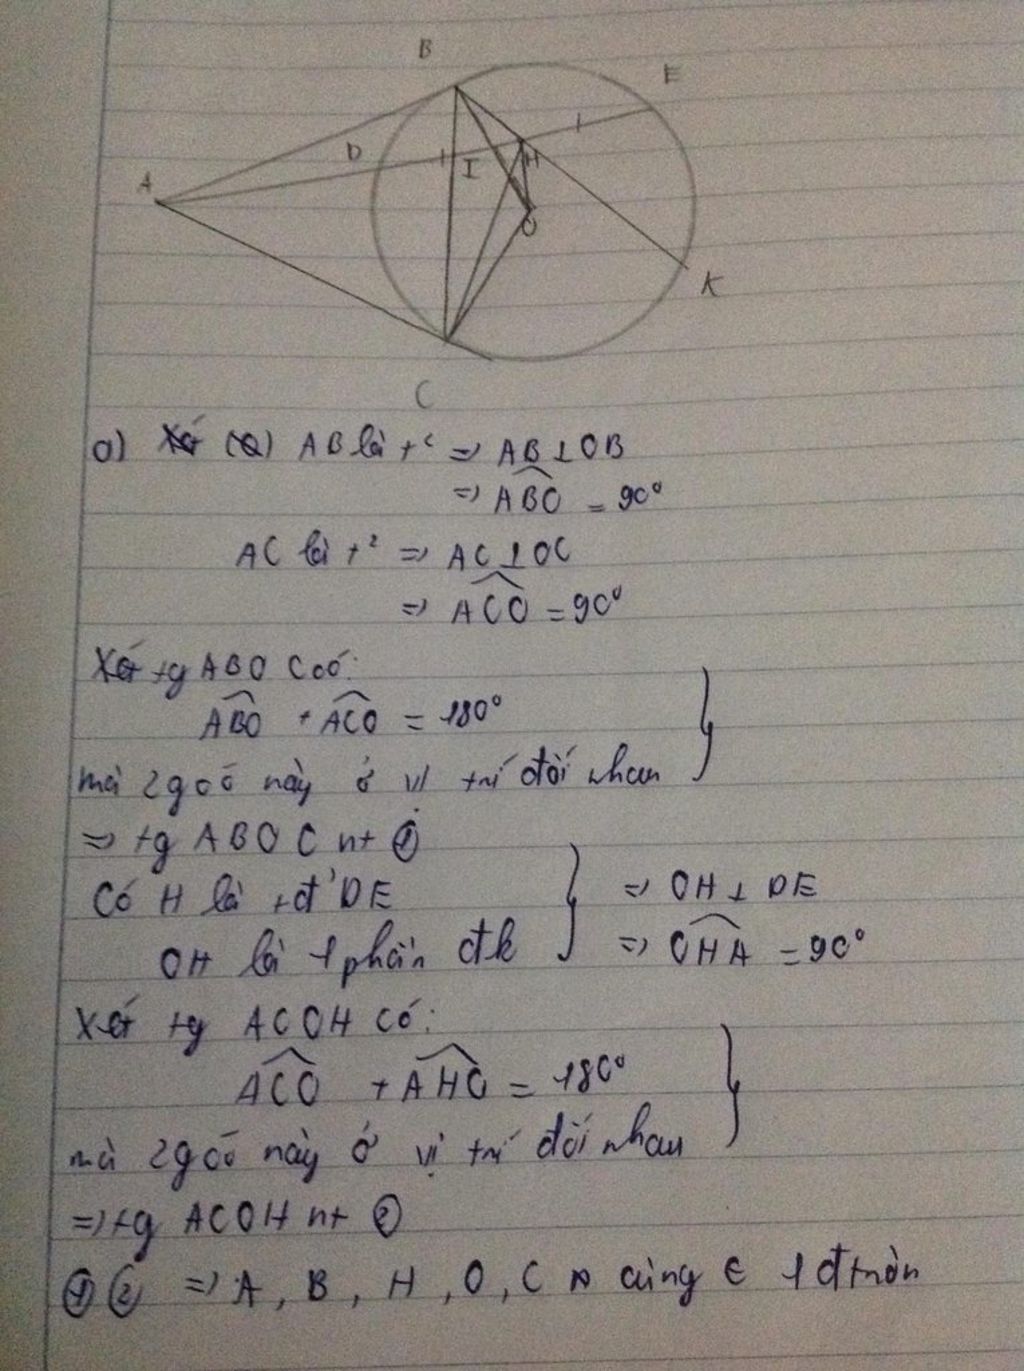 B
E
D
H
I
A
O
K
C
a) Xét (O) AB là t² => AB ⊥ OB
=> ABO = 90°
AC là t² => AC ⊥ OC
=> ACO = 90°
Xét tg ABOC có:
ABO + ACO = 180°
mà 2 góc này ở vị trí đối nhau
=> tg ABOC nt ①
Có H là tđ' DE
=> OH ⊥ DE
OH là 1 phần đk
=> OHA = 90°
Xét tg ACOH có:
ACO + AHO = 180°
mà 2 góc này ở vị trí đối nhau
=> tg ACOH nt ②
① ② => A, B, H, O, C cùng ∈ 1 đtròn